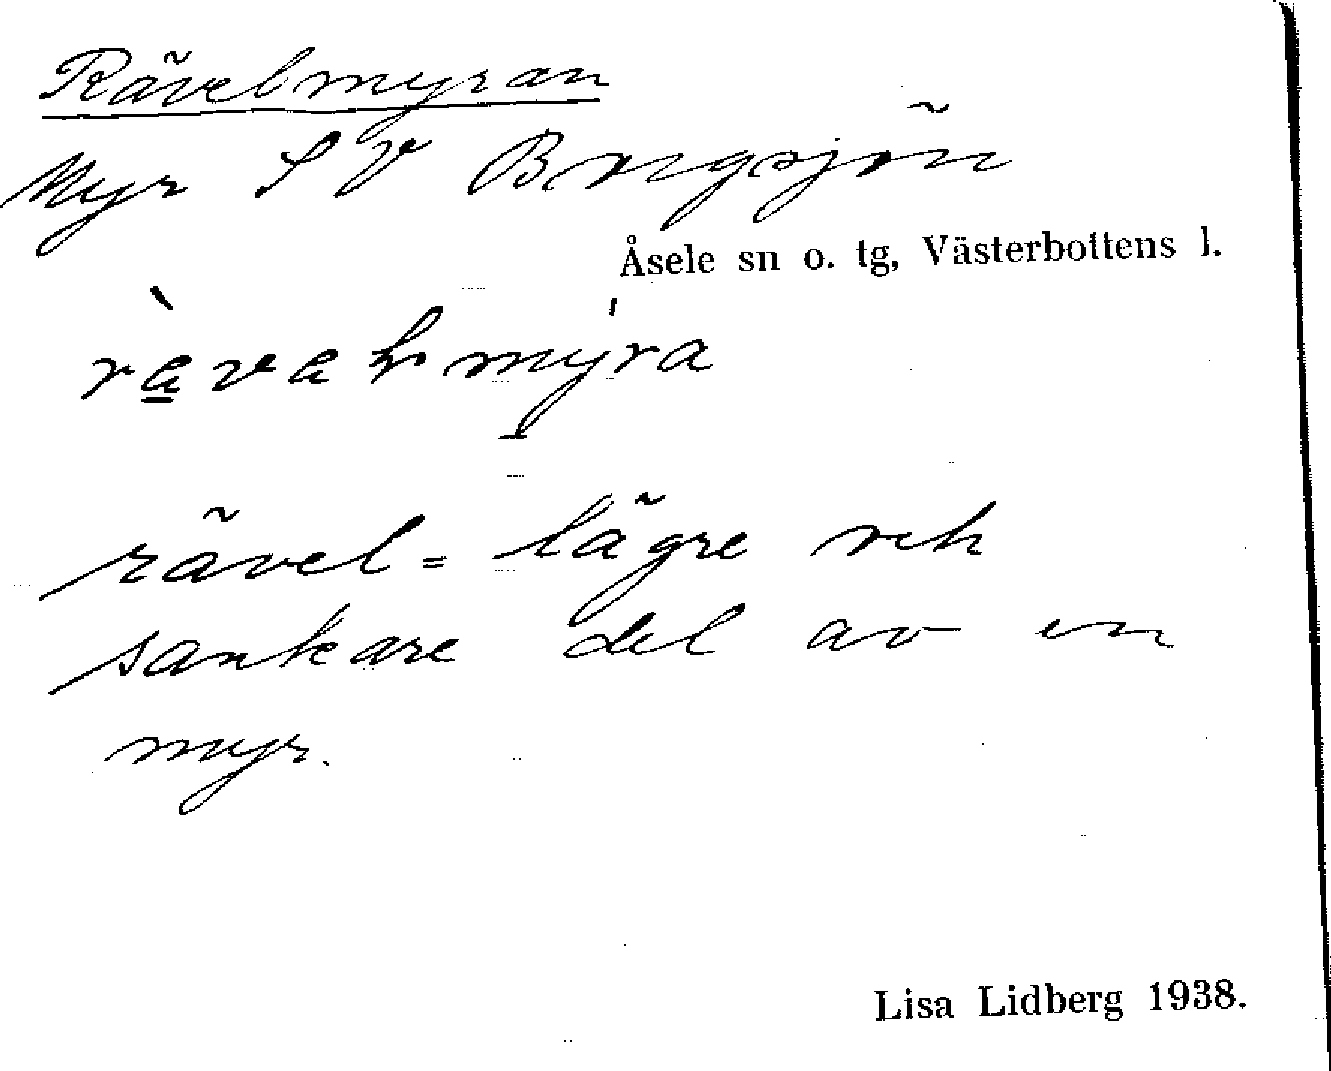 Rävelmyran
Myr S V Borgsjön
Åsele sn o. tg, Västerbottens l.
rävel = lägre och
sankare del av en
myr.
Lisa Lidberg 1938.